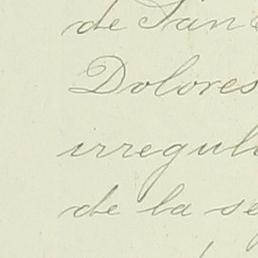 de San
Dolores
irregul
de la se